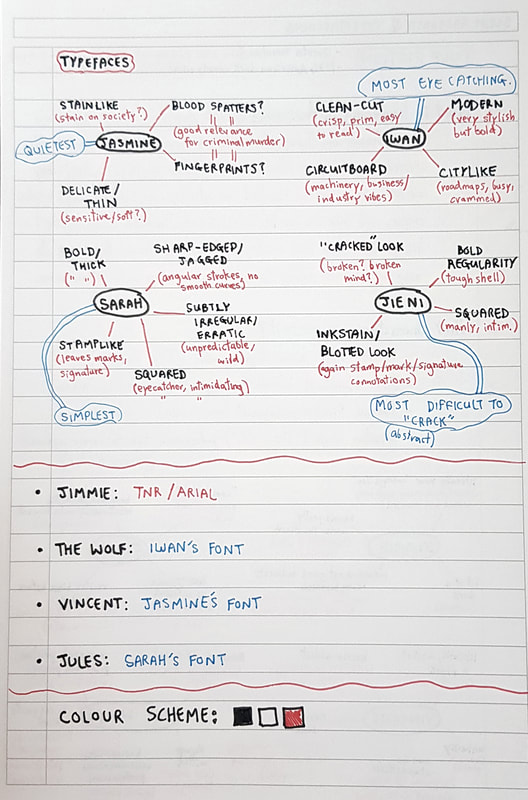 TYPEFACES
STAINLIKE
(stain on society?)
BLOOD SPATTERS?
" "
(good relevance
for criminal murder)
" "
FINGERPRINTS?
QUIETEST
JASMINE
DELICATE/
THIN
(sensitive/soft?)
MOST EYE CATCHING.
CLEAN-CUT
(crisp, prim, easy
to read)
MODERN
(very stylish
but bold)
IWAN
CIRCUITBOARD
(machinery, business/
industry vibes)
CITYLIKE
(roadmaps, busy,
crammed)
BOLD/
THICK
(" ")
SHARP-EDGED/
JAGGED
(angular strokes, no
smooth curves)
SARAH
SUBTLY
IRREGULAR/
ERRATIC
(unpredictable/
wild)
STAMPLIKE
(leaves marks,
signature)
SQUARED
(eyecatcher, intimidating)
" "
SIMPLEST
"CRACKED" LOOK
(broken? broken
mind?)
BOLD
REGULARITY
(tough shell)
JIENI
SQUARED
(manly, intim.)
INKSTAIN/
BLOTTED LOOK
(again stamp/mark/signature
connotations)
MOST DIFFICULT TO
"CRACK"
(abstract)
• JIMMIE: TNR/ARIAL
• THE WOLF: IWAN'S FONT
• VINCENT: JASMINE'S FONT
• JULES: SARAH'S FONT
COLOUR SCHEME: